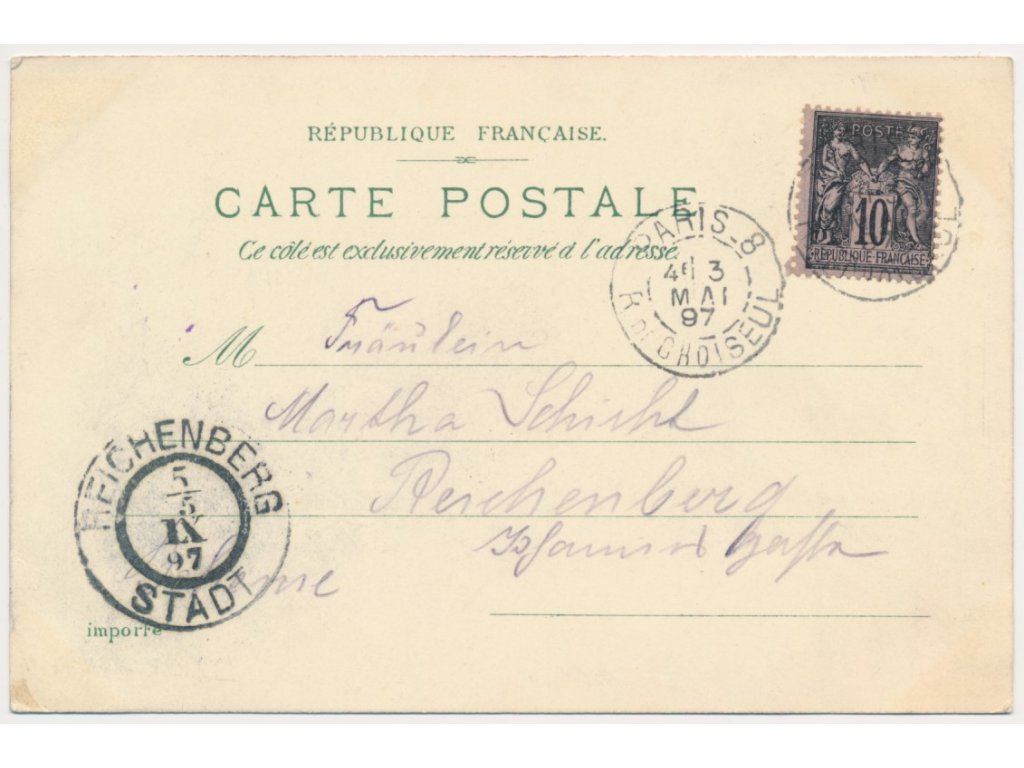 RÉPUBLIQUE FRANÇAISE.
CARTE POSTALE
Ce côté est exclusivement réservé à l'adresse.
POSTE
10
RÉPUBLIQUE FRANÇAISE
PARIS_8
4E 3
MAI
97
R. DE CHOISEUL
M Fräulein
Martha Schicht
Reichenberg
REICHENBERG
5
5
IX
97
STADT
importé